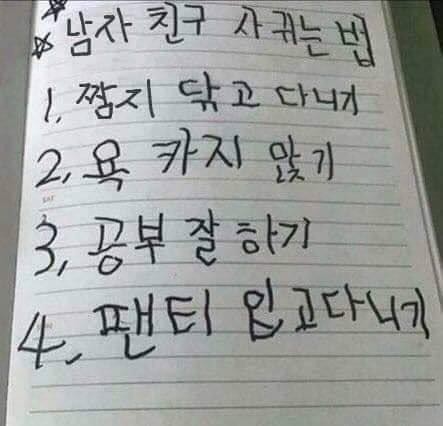 남자 친구 사귀는 법
1. 짬지 닦고 다니기
2. 욕 카지 않기
3. 공부 잘 하기
4. 팬티 입고다니기